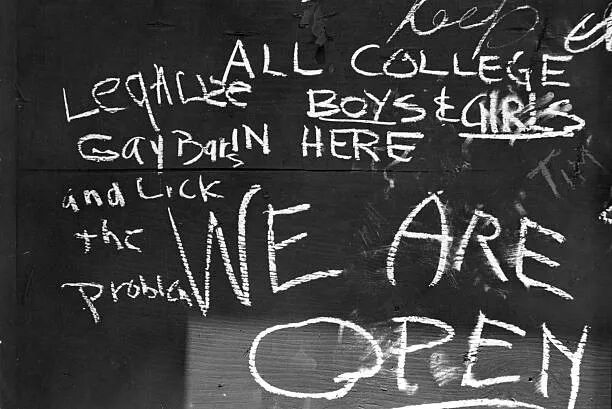 ALL COLLEGE
BOYS & GIRLS
IN HERE
WE ARE
OPEN
LegALize
Gay Bars
and Lick
the
problem